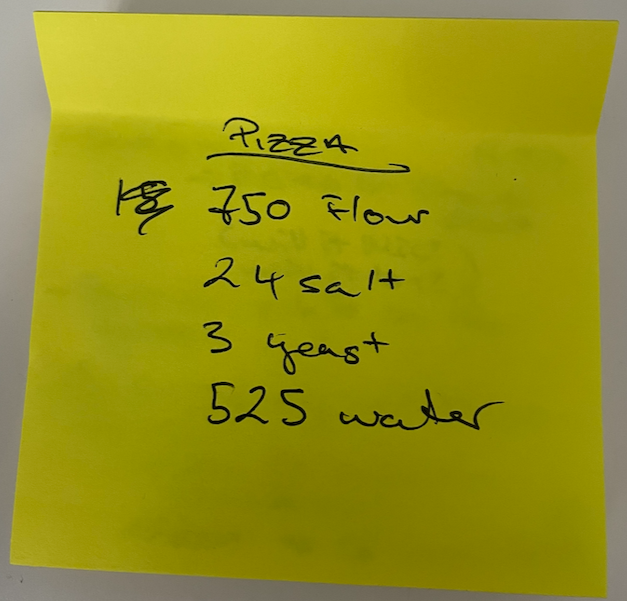 PIZZA
750 Flour
24 salt
3 yeast
525 water